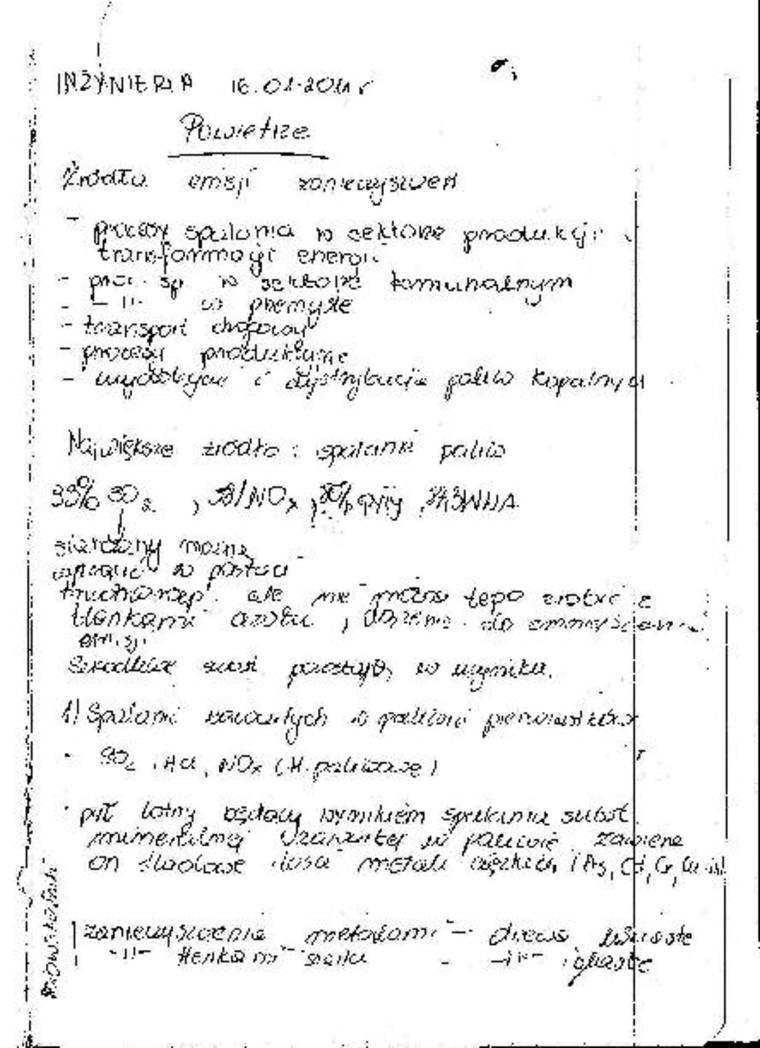 INŻYNIERIA 16.01.2011r
Powietrze
Źródła emisji zanieczyszczeń
- procesy spalania w sektorze produkcji i
transformacji energii
- proc. sp. w sektorze komunalnym
- -||- w przemyśle
- transport drogowy
- procesy produkcyjne
- wydobycie i dystrybucja paliw kopalnych
Największe źródło: spalanie paliw
SO2, NOx, pyły, WWA
można
w postaci
ale nie można tego zrobić z
tlenkami azotu, do
emisji
Szkodliwe subst. powstają w wyniku:
1) Spalania zawartych w paliwie pierwiastków
- SO2, HCl, NOx (N. paliwowe)
- pył lotny będący wynikiem spalania subst.
mineralnej w paliwie zawiera
on śladowe ilości metali ciężkich (As, Cd, Cr, Cu
zanieczyszczenia metalami - drzewa liściaste
-||- tlenkami siarki - -||- iglaste